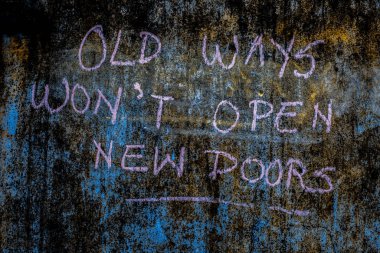 OLD WAYS
WON'T OPEN
NEW DOORS